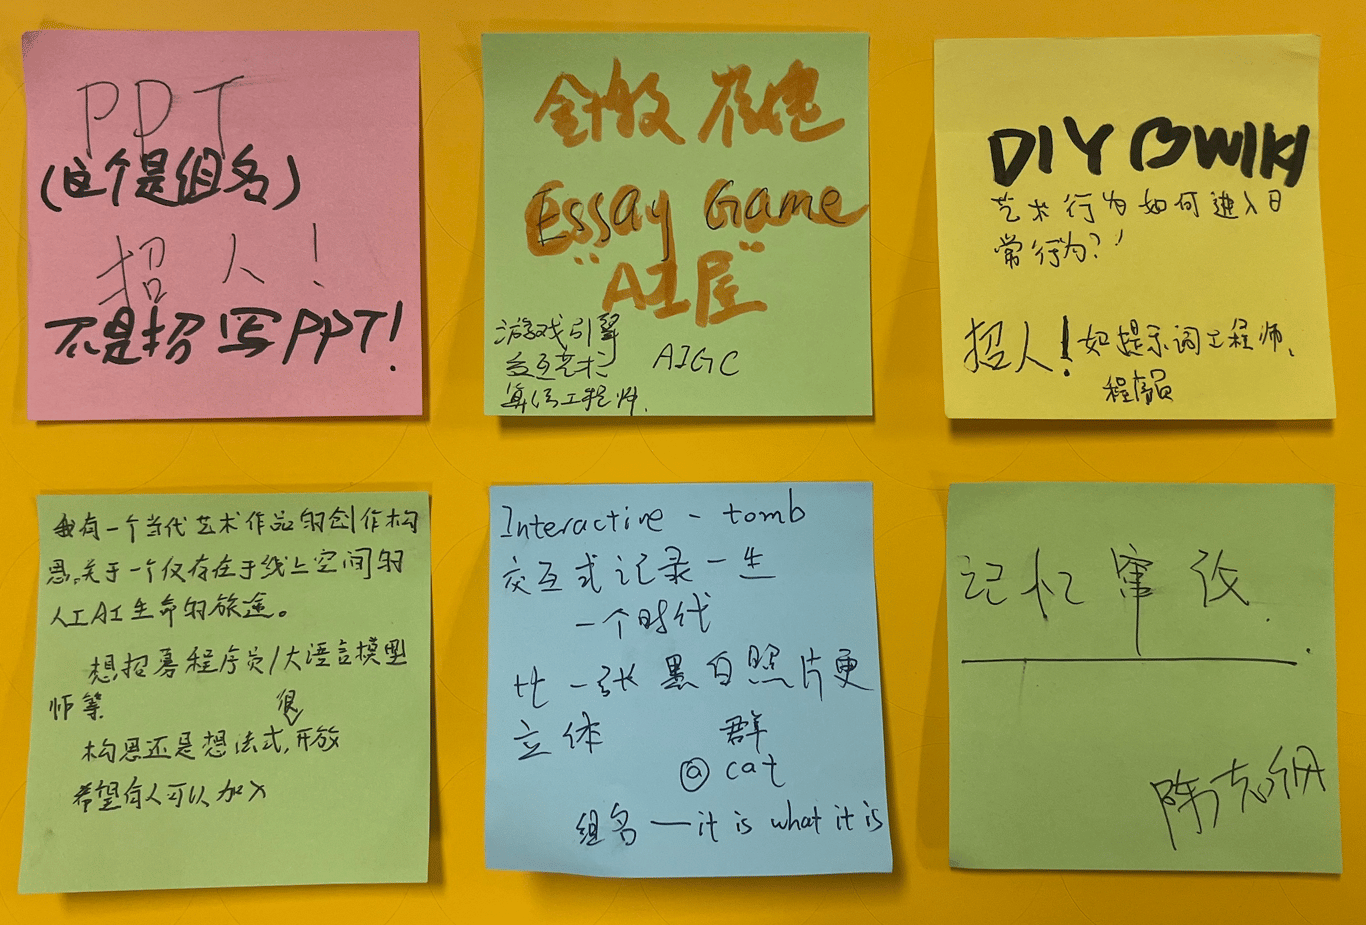 PPT
(这个是组名)
招人!
不是招写PPT!
Essay Game
"AI屋"
游戏引擎
交互艺术
AIGC
算法工程师.
DIY WIKI
艺术行为如何进入日
常行为?
招人!如提示词工程师、
程序员
我有一个当代艺术作品的创作构
思,关于一个仅存在于线上空间的
人工AI生命的旅途。
想招募程序员/大语言模型
师等
很
构思还是想法式,开放
希望有人可以加入
Interactive - tomb
交互式记录一生
一个时代
比一张黑白照片更
立体
群
@cat
组名——it is what it is
记忆窜改.